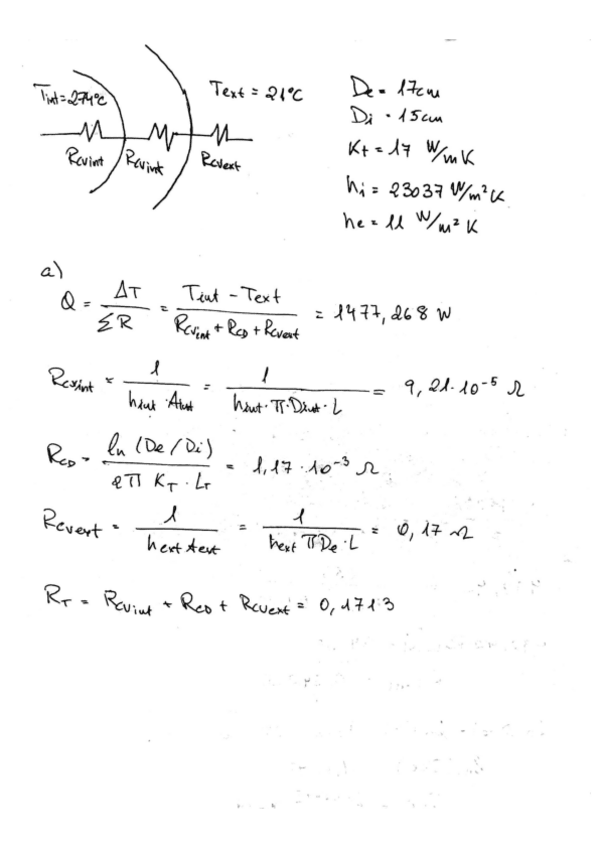 Tint=274°C
Text = 21°C
Rcvint Rcvint Rcvext
De = 17cm
Di = 15cm
Kt = 17 W/mK
hi = 23037 W/m²K
he = 11 W/m² K
a)
Q = ΔT / ΣR = (Tint - Text) / (Rcvint + RCD + Rcvext) = 1477,268 W
Rcvint = 1 / (hint · Aint) = 1 / (hint · π · Dint · L) = 9,21·10⁻⁵ Ω
RCD = ln (De / Di) / (2π KT · LT) = 1,17 · 10⁻³ Ω
Rcvext = 1 / (hext Aext) = 1 / (hext π De · L) = 0,17 Ω
RT = Rcvint + RCD + Rcvext = 0,1713